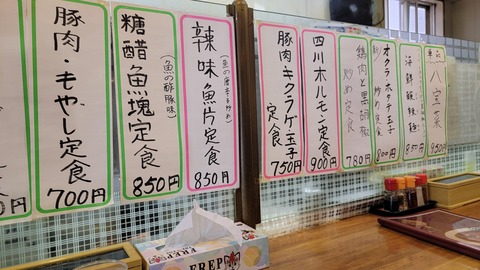 豚肉・もやし定食
700円
糖醋魚塊定食
(魚の酢豚味)
850円
辣味魚片定食
(魚の唐辛子炒め)
850円
豚肉・キクラゲ・玉子定食
750円
四川ホルモン定食
900円
鶏肉と黒胡椒炒め定食
780円
オクラ・ホタテ・玉子炒め定食
800円
850円
八宝菜
950円
円
FREP